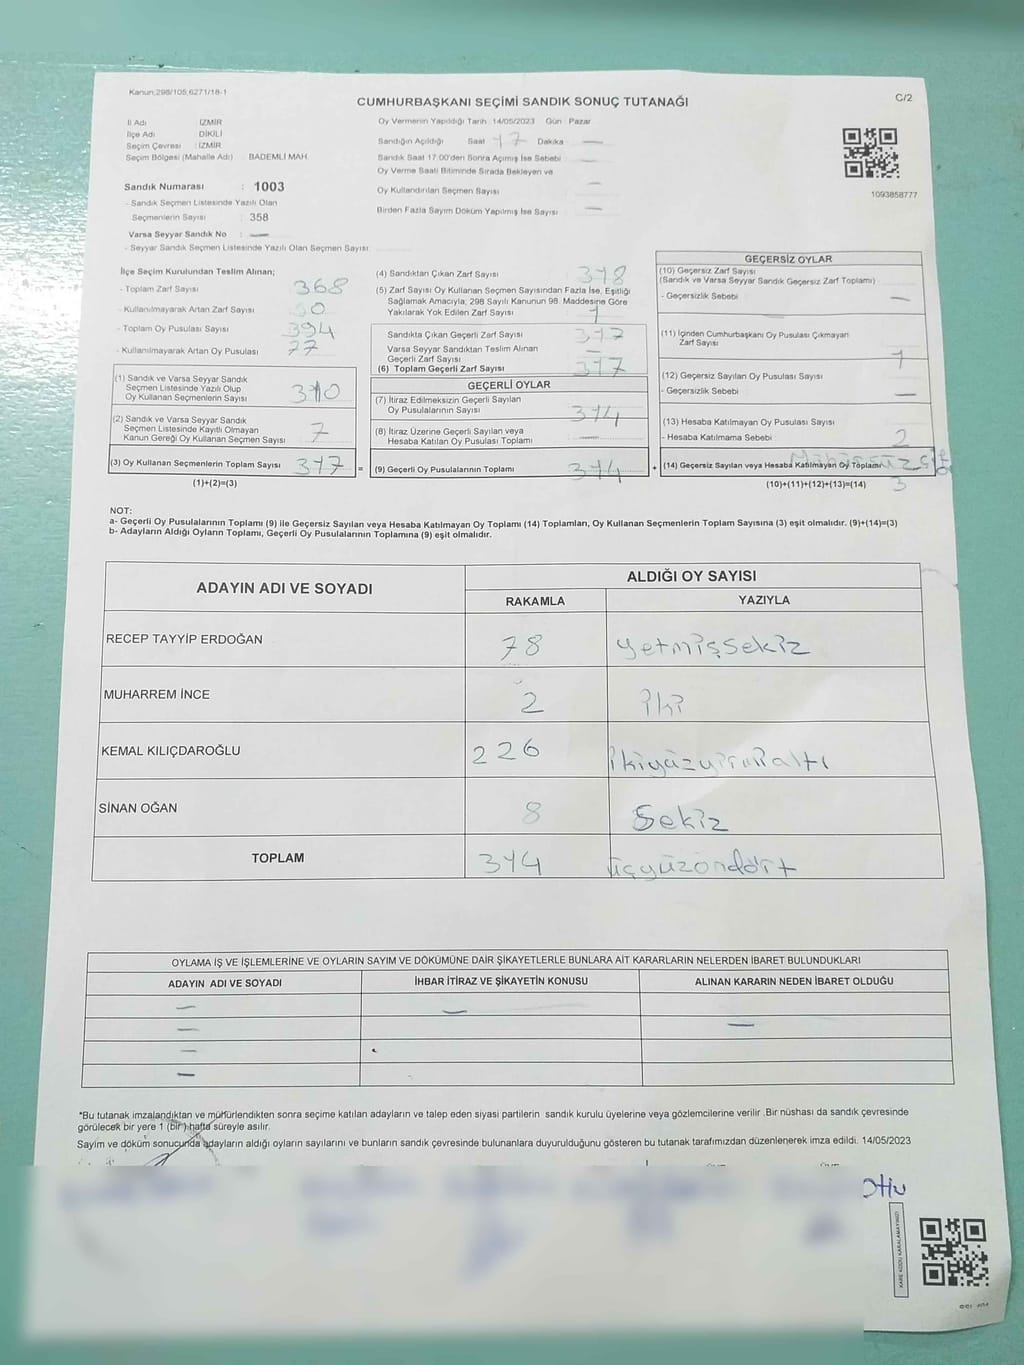 Kanun;298/105;6271/18-1
CUMHURBAŞKANI SEÇİMİ SANDIK SONUÇ TUTANAĞI
C/2
İl Adı İZMİR
İlçe Adı DİKİLİ
Seçim Çevresi : İZMİR
Seçim Bölgesi (Mahalle Adı) BADEMLİ MAH.
Sandık Numarası : 1003
- Sandık Seçmen Listesinde Yazılı Olan
Seçmenlerin Sayısı : 358
Varsa Seyyar Sandık No : —
- Seyyar Sandık Seçmen Listesinde Yazılı Olan Seçmen Sayısı
Oy Vermenin Yapıldığı Tarih 14/05/2023 Gün Pazar
Sandığın Açıldığı Saat 17 Dakika —
Sandık Saat 17.00'den Sonra Açımış İse Sebebi —
Oy Verme Saati Bitiminde Sırada Bekleyen ve
Oy Kullandırılan Seçmen Sayısı —
Birden Fazla Sayım Döküm Yapılmış İse Sayısı —
1093858777
İlçe Seçim Kurulundan Teslim Alınan;
- Toplam Zarf Sayısı 368
- Kullanılmayarak Artan Zarf Sayısı
- Toplam Oy Pusulası Sayısı 394
- Kullanılmayarak Artan Oy Pusulası 77
(1) Sandık ve Varsa Seyyar Sandık
Seçmen Listesinde Yazılı Olup
Oy Kullanan Seçmenlerin Sayısı 310
(2) Sandık ve Varsa Seyyar Sandık
Seçmen Listesinde Kayıtlı Olmayan
Kanun Gereği Oy Kullanan Seçmen Sayısı 7
(3) Oy Kullanan Seçmenlerin Toplam Sayısı 317 =
(1)+(2)=(3)
(4) Sandıktan Çıkan Zarf Sayısı 318
(5) Zarf Sayısı Oy Kullanan Seçmen Sayısından Fazla İse, Eşitliği
Sağlamak Amacıyla, 298 Sayılı Kanunun 98. Maddesine Göre
Yakılarak Yok Edilen Zarf Sayısı 1
Sandıkta Çıkan Geçerli Zarf Sayısı 317
Varsa Seyyar Sandıktan Teslim Alınan
Geçerli Zarf Sayısı —
(6) Toplam Geçerli Zarf Sayısı 317
GEÇERLİ OYLAR
(7) İtiraz Edilmeksizin Geçerli Sayılan
Oy Pusulalarının Sayısı 314
(8) İtiraz Üzerine Geçerli Sayılan veya
Hesaba Katılan Oy Pusulası Toplamı —
(9) Geçerli Oy Pusulalarının Toplamı 314 +
GEÇERSİZ OYLAR
(10) Geçersiz Zarf Sayısı
(Sandık ve Varsa Seyyar Sandık Geçersiz Zarf Toplamı)
- Geçersizlik Sebebi —
(11) İçinden Cumhurbaşkanı Oy Pusulası Çıkmayan
Zarf Sayısı 1
(12) Geçersiz Sayılan Oy Pusulası Sayısı
- Geçersizlik Sebebi —
(13) Hesaba Katılmayan Oy Pusulası Sayısı
- Hesaba Katılmama Sebebi 2
(14) Geçersiz Sayılan veya Hesaba Katılmayan Oy Toplamı
(10)+(11)+(12)+(13)=(14) 3
NOT:
a- Geçerli Oy Pusulalarının Toplamı (9) ile Geçersiz Sayılan veya Hesaba Katılmayan Oy Toplamı (14) Toplamları, Oy Kullanan Seçmenlerin Toplam Sayısına (3) eşit olmalıdır. (9)+(14)=(3)
b- Adayların Aldığı Oyların Toplamı, Geçerli Oy Pusulalarının Toplamına (9) eşit olmalıdır.
ADAYIN ADI VE SOYADI ALDIĞI OY SAYISI
RAKAMLA YAZIYLA
RECEP TAYYİP ERDOĞAN 78 yetmişsekiz
MUHARREM İNCE 2 iki
KEMAL KILIÇDAROĞLU 226 ikiyüzyirmialtı
SİNAN OĞAN 8 Sekiz
TOPLAM 314 üçyüzönddört
OYLAMA İŞ VE İŞLEMLERİNE VE OYLARIN SAYIM VE DÖKÜMÜNE DAİR ŞİKAYETLERLE BUNLARA AİT KARARLARIN NELERDEN İBARET BULUNDUKLARI
ADAYIN ADI VE SOYADI İHBAR İTİRAZ VE ŞİKAYETİN KONUSU ALINAN KARARIN NEDEN İBARET OLDUĞU
— —
— —
—
—
*Bu tutanak imzalandıktan ve mühürlendikten sonra seçime katılan adayların ve talep eden siyasi partilerin sandık kurulu üyelerine veya gözlemcilerine verilir .Bir nüshası da sandık çevresinde
görülecek bir yere 1 (bir ) hafta süreyle asılır.
Sayım ve döküm sonucunda adayların aldığı oyların sayılarını ve bunların sandık çevresinde bulunanlara duyurulduğunu gösteren bu tutanak tarafımızdan düzenlenerek imza edildi. 14/05/2023
KARE KODU KARALAMAYINIZ!